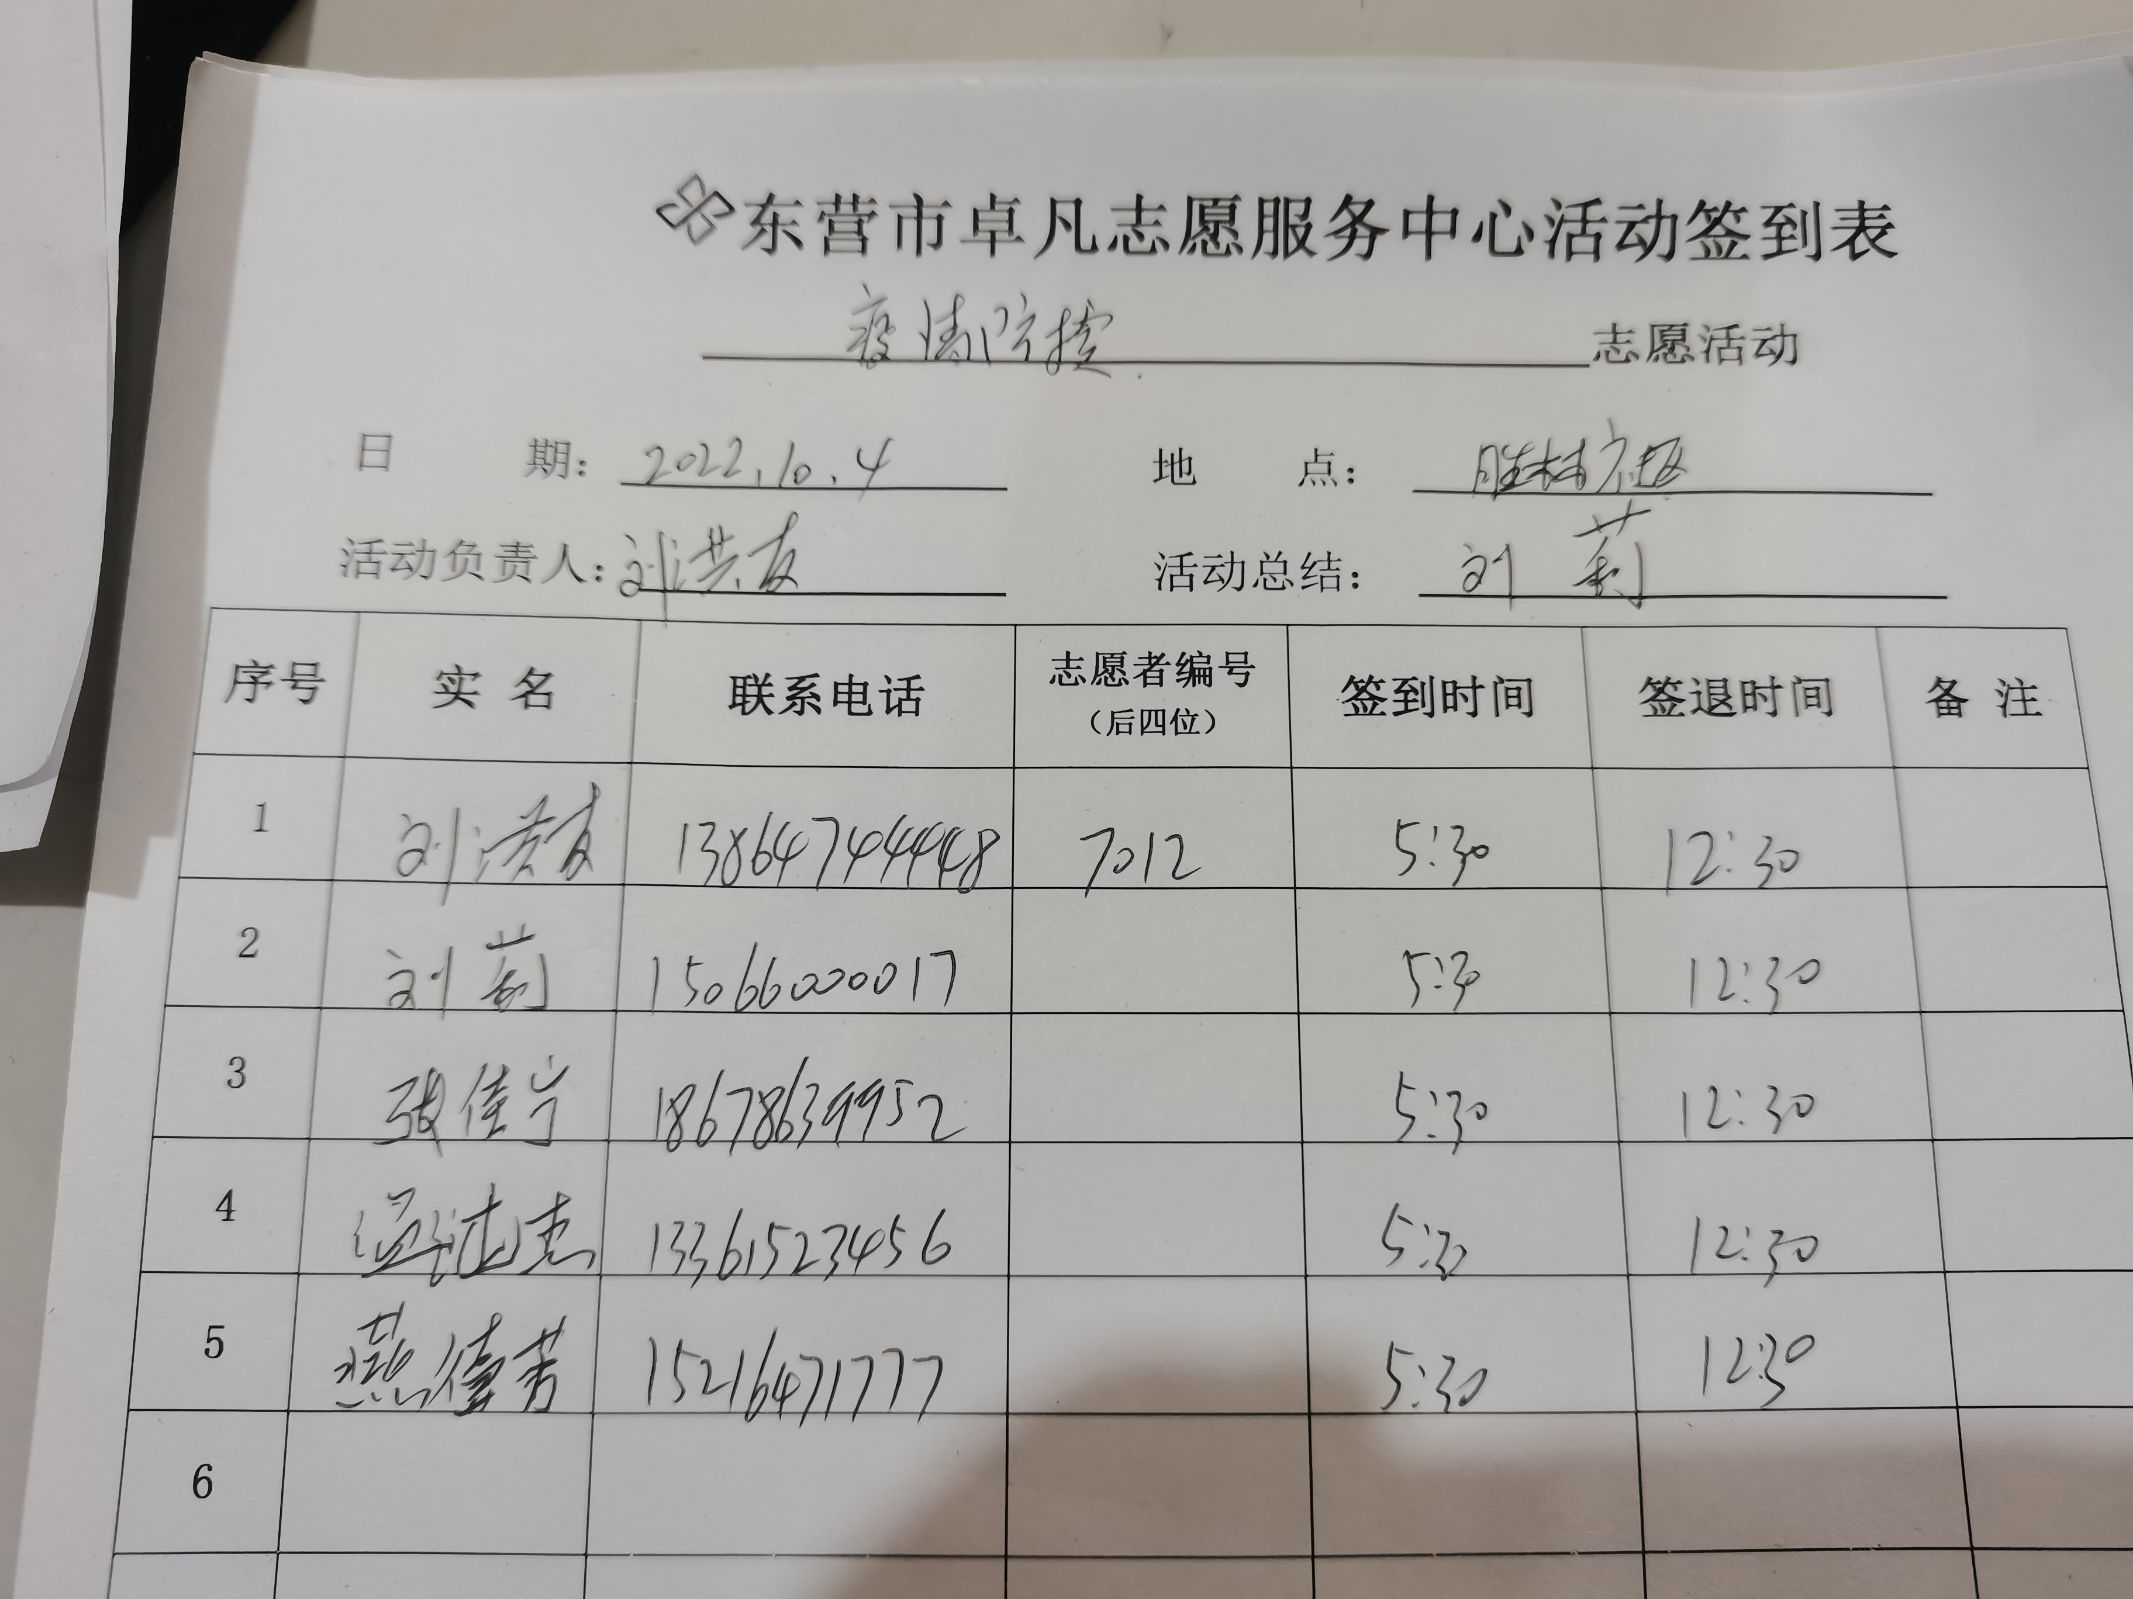 东营市卓凡志愿服务中心活动签到表
疫情防控 志愿活动
日 期： 2022.10.4 地 点： 胜林京坂
活动负责人： 刘洪友 活动总结： 刘莉
序号 实 名 联系电话 志愿者编号（后四位） 签到时间 签退时间 备 注
1 刘洪友 13864744448 7012 5:30 12:30
2 刘莉 15066000017 5:30 12:30
3 张佳宁 18678639952 5:30 12:30
4 13361523456 5:30 12:30
5 燕德芳 15216471777 5:30 12:30
6